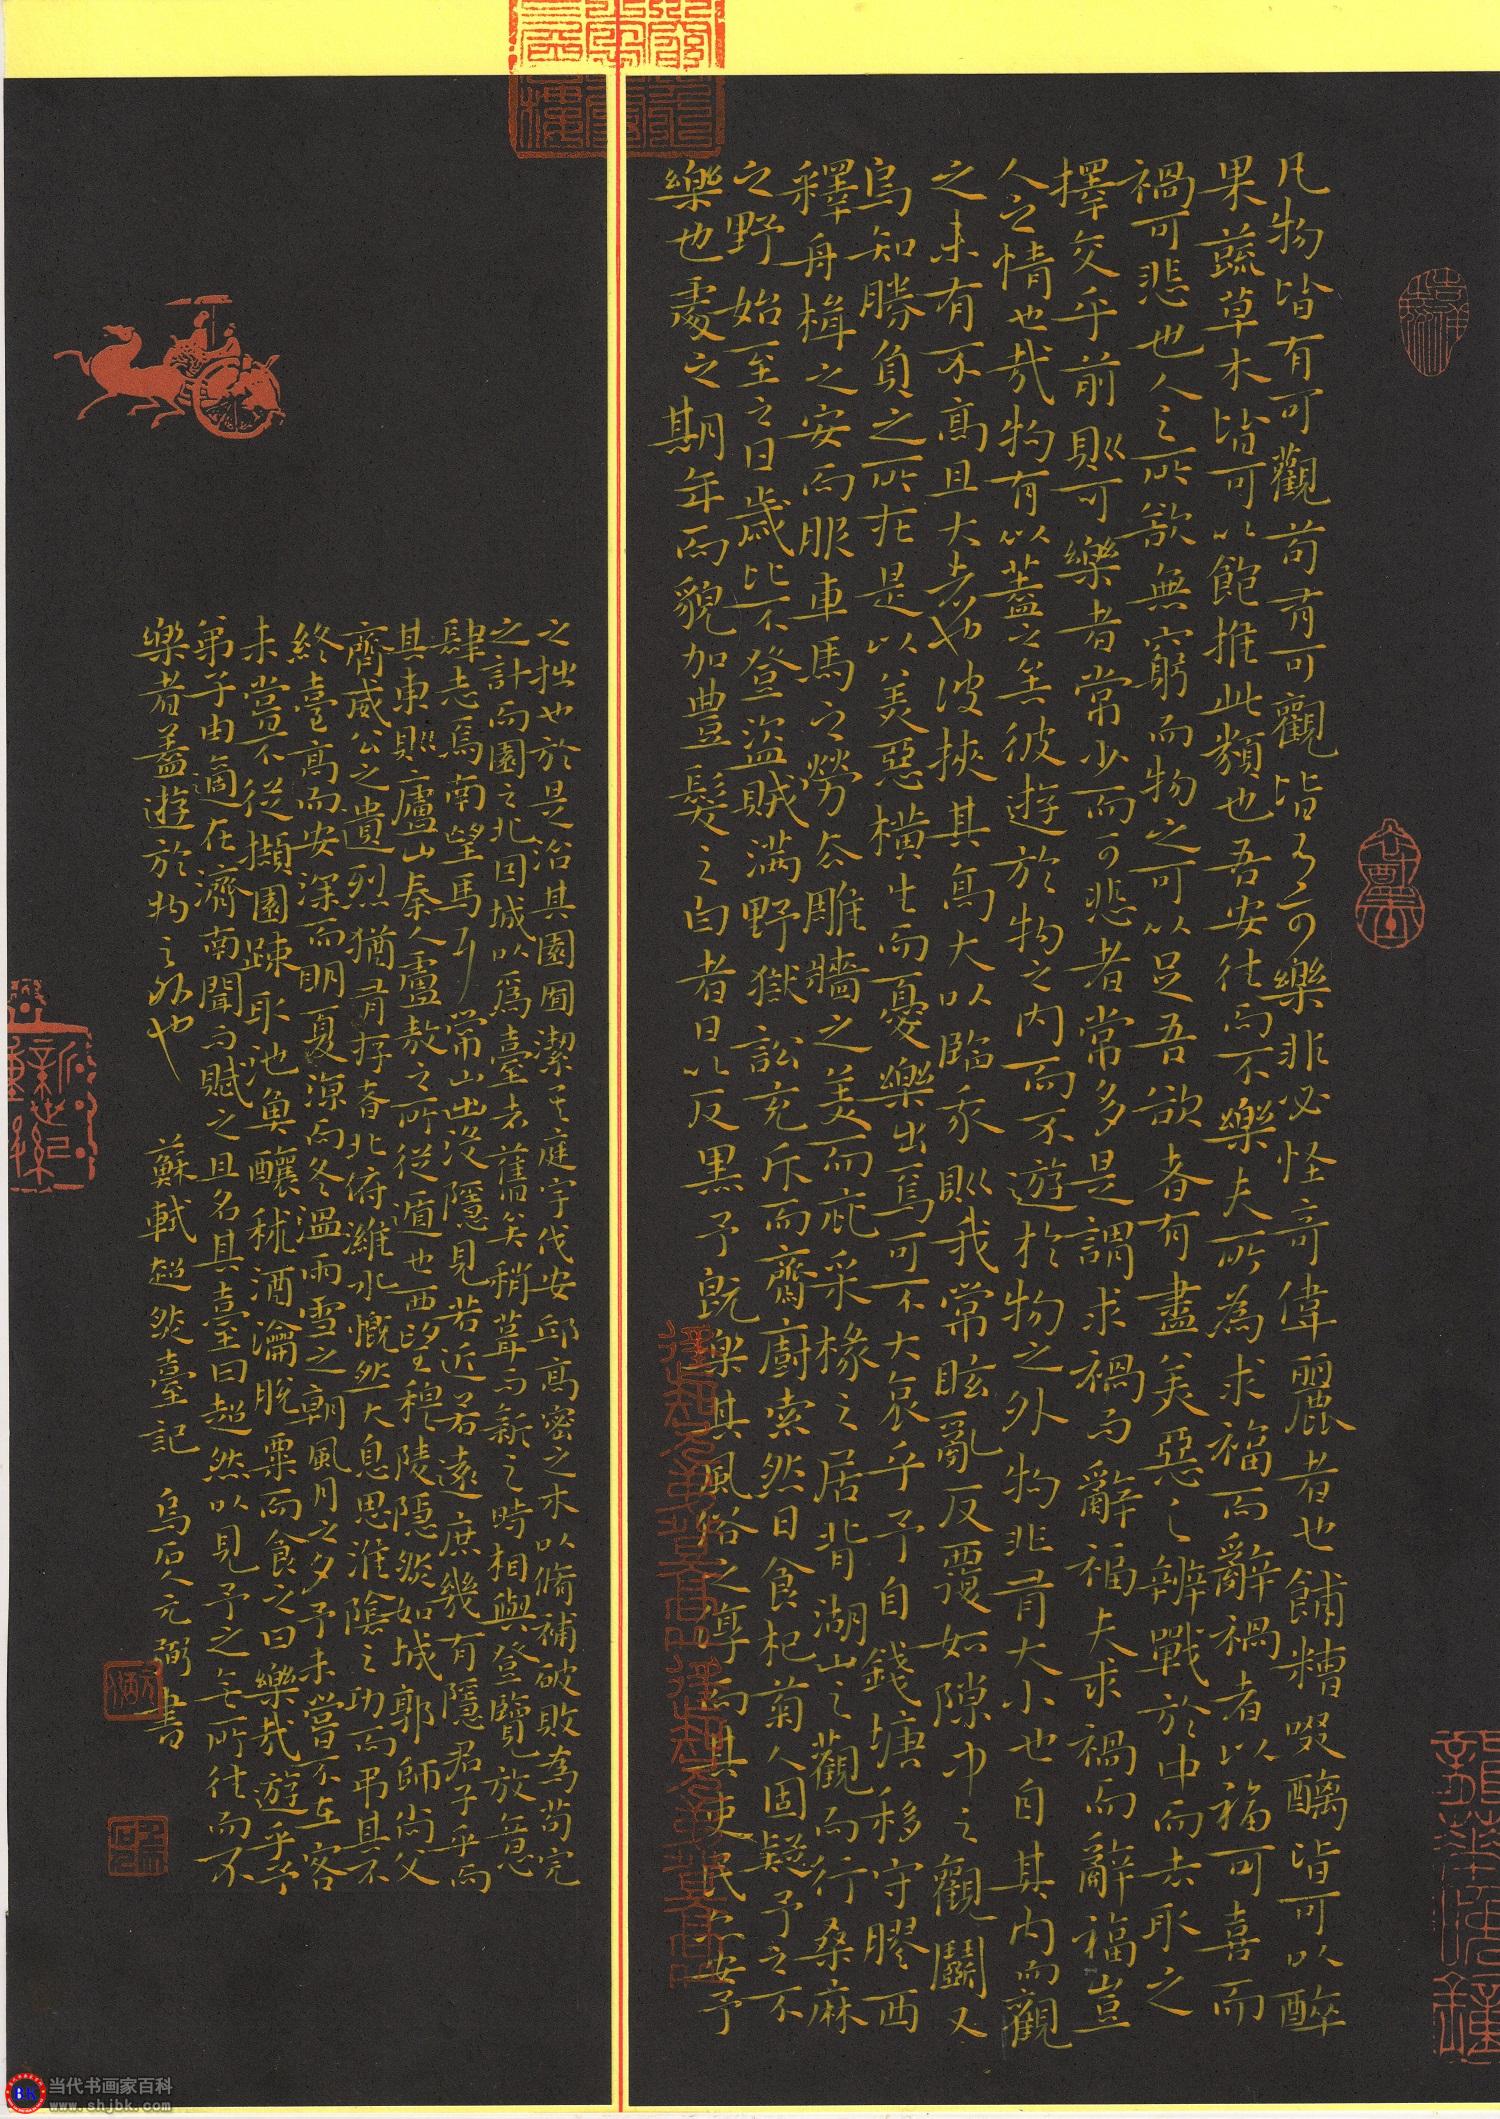 凡物皆有可觀苟有可觀皆有可樂非必怪奇偉麗者也餔糟啜醨皆可以醉
果蔬草木皆可以飽推此類也吾安往而不樂夫所為求福而辭禍者以福可喜而
禍可悲也人之所欲無窮而物之可以足吾欲者有盡美惡之辨戰於中而去取之
擇交乎前則可樂者常少而可悲者常多是謂求禍而辭福夫求禍而辭福豈
人之情也哉物有以蓋之矣彼遊於物之内而不遊於物之外物非有大小也自其内而觀
之未有不高且大者也彼挾其高大以臨我則我常眩亂反覆如隙中之觀鬭又
烏知勝負之所在是以美惡橫生而憂樂出焉可不大哀乎予自錢塘移守膠西
釋舟楫之安而服車馬之勞去雕牆之美而庇采椽之居背湖山之觀而行桑麻
之野始至之日歲比不登盜賊滿野獄訟充斥而齋廚索然日食杞菊人固疑予之不
樂也處之期年而貌加豐髮之白者日以反黑予既樂其風俗之淳而其吏民安予
之拙也於是治其園囿潔其庭宇伐安邱高密之木以脩補破敗為苟完
之計而園之北因城以為臺者舊矣稍葺而新之時相與登覽放意
肆志焉南望馬耳常山出沒隱見若近若遠庶幾有隱君子乎而
其東則廬山秦人盧敖之所從遁也西望穆陵隱然如城郭師尚父
齊威公之遺烈猶有存者北俯濰水慨然大息思淮陰之功而弔其不
終臺高而安深而明夏涼而冬溫雨雪之朝風月之夕予未嘗不在客
未嘗不從擷園疎取池魚釀秫酒瀹脫粟而食之曰樂哉遊乎予
弟子由適在濟南聞而賦之且名其臺曰超然以見予之無所往而不
樂者蓋遊於物之外也 蘇軾超然臺記 烏石人元弼書
当代书画家百科
www.shjbk.com